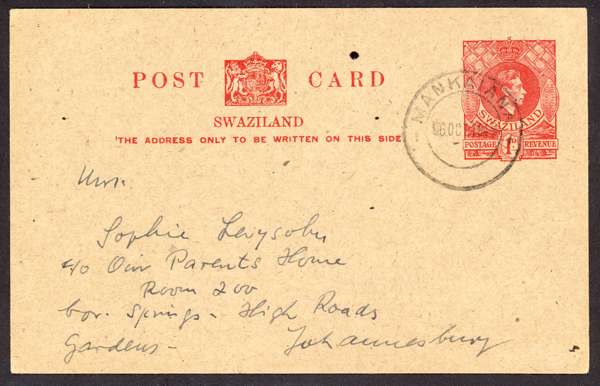 POST CARD
SWAZILAND
THE ADDRESS ONLY TO BE WRITTEN ON THIS SIDE
MANKAIANA
OCT
SWAZILAND
POSTAGE 1D REVENUE
Mrs.
Sophie Levysohn
c/o Our Parents Home
Room 200
cor. Springs - High Roads
Gardens - Johannesburg